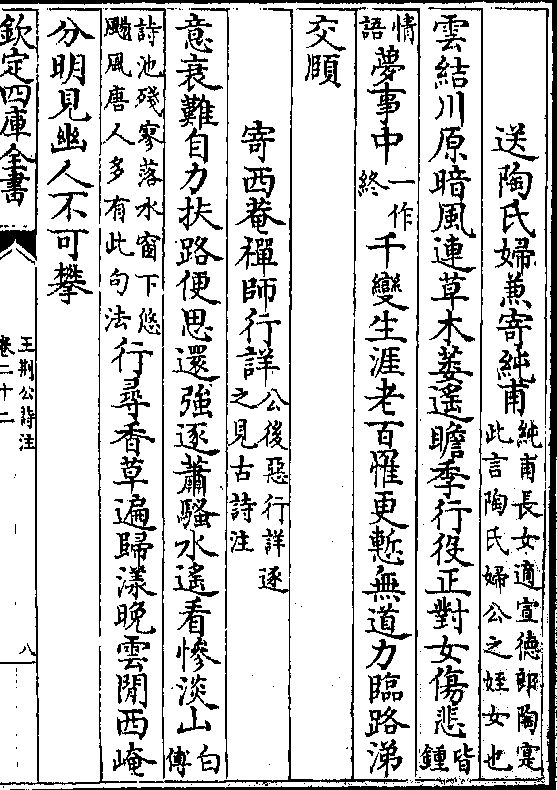 送陶氏婦兼寄純甫純甫長女適宣德郎陶寔此言陶氏婦公之姪女也
雲結川原暗風連草木萎遙瞻季行役正對女傷悲皆鍾
情語夢事中一作終千變生涯老百罹更慙無道力臨路涕
交頤
寄西菴禪師行詳公後惡行詳逐之見古詩注
意衰難自力扶路便思還強逐蕭騷水遙看慘淡山白傅
詩池殘寥落水窗下悠颺風唐人多有此句法行尋香草遍歸漾晚雲閒西崦
分明見幽人不可攀
欽定四庫全書
王荊公詩注
卷二十二
八